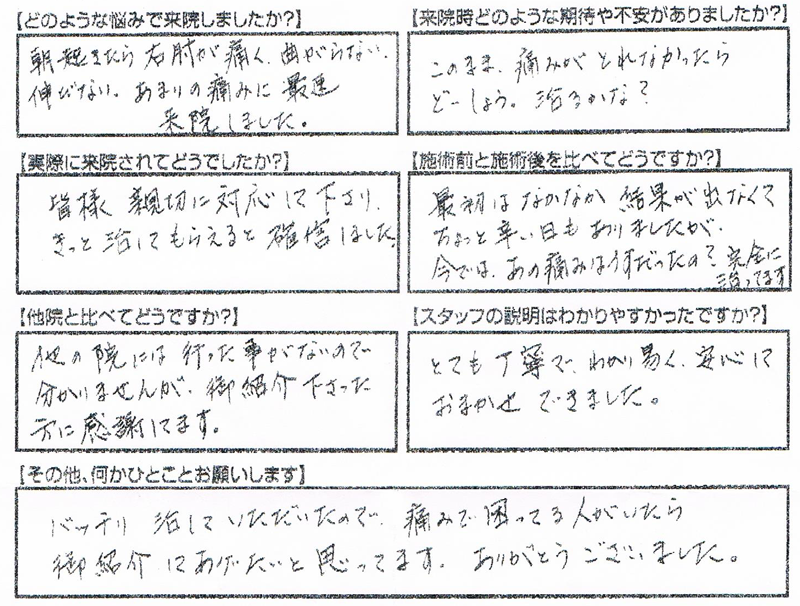 【どのような悩みで来院しましたか?】
朝起きたら右肘が痛く、曲がらない、
伸びない。あまりの痛みに最速
来院しました。
【来院時どのような期待や不安がありましたか?】
このまま、痛みがとれなかったら
どーしよう。治るかな?
【実際に来院されてどうでしたか?】
皆様 親切に対応して下さり、
きっと治してもらえると確信しました。
【施術前と施術後を比べてどうですか?】
最初はなかなか結果が出なくて
ちょっと辛い日もありましたが、
今では、あの痛みはうそだったの?完全に
治ってます
【他院と比べてどうですか?】
他の院には行った事がないので
分かりませんが、御紹介下さった
方に感謝してます。
【スタッフの説明はわかりやすかったですか?】
とても丁寧で、わかり易く、安心して
おまかせできました。
【その他、何かひとことお願いします】
バッチリ治していただいたので、痛みで困ってる人がいたら
御紹介してあげたいと思ってます。ありがとうございました。